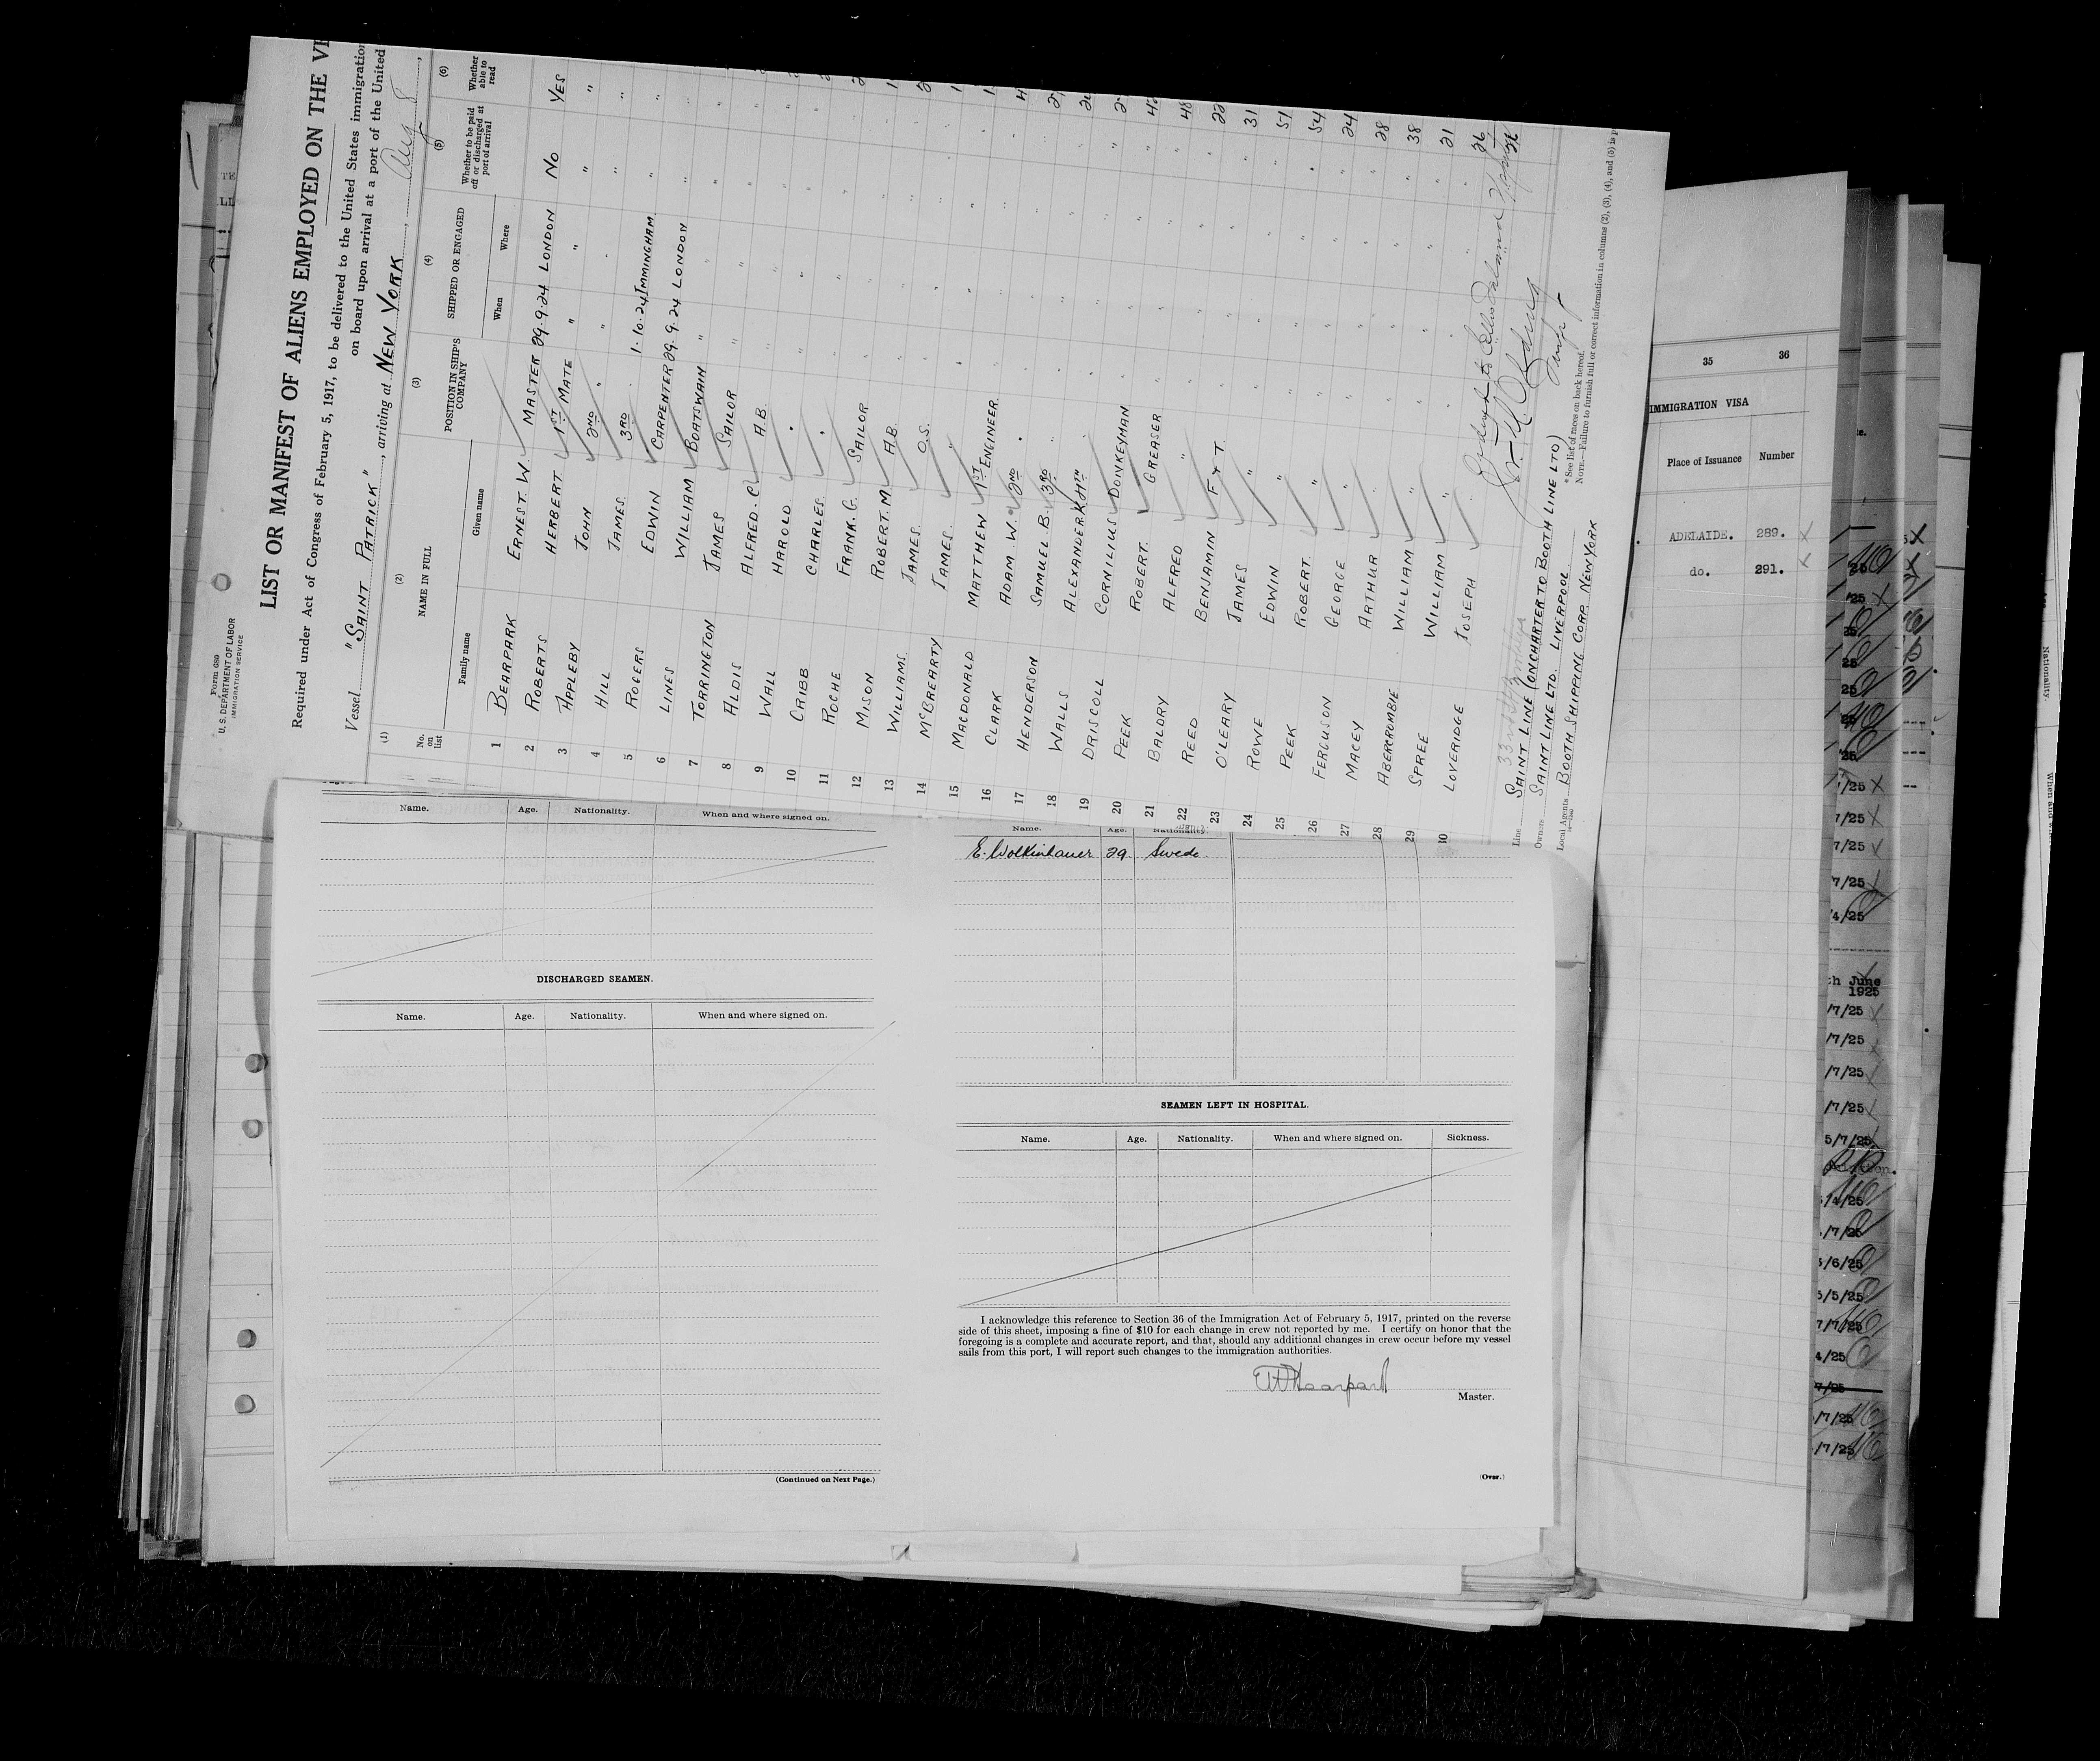 Form 689
U. S. DEPARTMENT OF LABOR
IMMIGRATION SERVICE
LIST OR MANIFEST OF ALIENS EMPLOYED ON THE VE
Required under Act of Congress of February 5, 1917, to be delivered to the United States immigration
on board upon arrival at a port of the United
Vessel "SAINT PATRICK", arriving at NEW YORK, Aug 8,
(1) (2) (3) (4) (5) (6)
No. on list NAME IN FULL POSITION IN SHIP'S COMPANY SHIPPED OR ENGAGED Whether to be paid off or discharged at port of arrival Whether able to read
Family name Given name When Where
1 BEARPARK ERNEST W. MASTER 29.9.24 LONDON NO YES
2 ROBERTS HERBERT 1ST MATE " " " "
3 APPLEBY JOHN 2ND " " " " "
4 HILL JAMES 3RD " " "
5 ROGERS EDWIN CARPENTER 1.10.24 IMMINGHAM " "
6 LINES WILLIAM BOATSWAIN 29.9.24 LONDON " "
7 TORRINGTON JAMES SAILOR " " " "
8 ALDIS ALFRED. C A.B. " " " "
9 WALL HAROLD " " " " "
10 CRIBB CHARLES " " " " "
11 ROCHE FRANK. G. SAILOR " " "
12 MISON ROBERT. M. A.B. " " "
13 WILLIAMS JAMES. O.S. " " "
14 McBREARTY JAMES. " " " "
15 MACDONALD MATTHEW 1ST ENGINEER " " "
16 CLARK ADAM. W. 2ND " " " "
17 HENDERSON SAMUEL. B. 3RD " " " "
18 WALLS ALEXANDER. K. 4TH " " " "
19 DRISCOLL CORNILIUS DONKEYMAN " " "
20 PEEK ROBERT. GREASER " " "
21 BALDRY ALFRED " " " "
22 REED BENJAMIN F & T. " " " 22
23 O'LEARY JAMES " " " " 31
24 ROWE EDWIN " " " " 51
25 PEEK ROBERT. " " " " 54
26 FERGUSON GEORGE " " " " 24
27 MACEY ARTHUR " " " " 28
28 ABERCROMBIE WILLIAM " " " " 38
29 SPREE WILLIAM " " " " 21
30 LOVERIDGE JOSEPH " " " " 26
Line SAINT LINE (ON CHARTER TO BOOTH LINE LTD)
Owners SAINT LINE LTD. LIVERPOOL
Local Agents BOOTH SHIPPING CORP. NEW YORK
* See list of races on back hereof.
NOTE.—Failure to furnish full or correct information in columns (2), (3), (4), and (5) is p
Name. Age. Nationality. When and where signed on.
DISCHARGED SEAMEN.
Name. Age. Nationality. When and where signed on.
(Continued on Next Page.)
Name. Age. Nationality.
E. Wolkinhauer 29. Swede.
SEAMEN LEFT IN HOSPITAL.
Name. Age. Nationality. When and where signed on. Sickness.
I acknowledge this reference to Section 36 of the Immigration Act of February 5, 1917, printed on the reverse
side of this sheet, imposing a fine of $10 for each change in crew not reported by me. I certify on honor that the
foregoing is a complete and accurate report, and that, should any additional changes in crew occur before my vessel
sails from this port, I will report such changes to the immigration authorities.
Master.
(Over.)
35 36
IMMIGRATION VISA
Place of Issuance Number
ADELAIDE. 289.
do. 291.
June
1925
/7/25
/7/25
/7/25
/7/25
5/7/25
/4/25
/7/25
/6/25
5/5/25
7/7/25
4/25
/7/25
/7/25
Nationality.